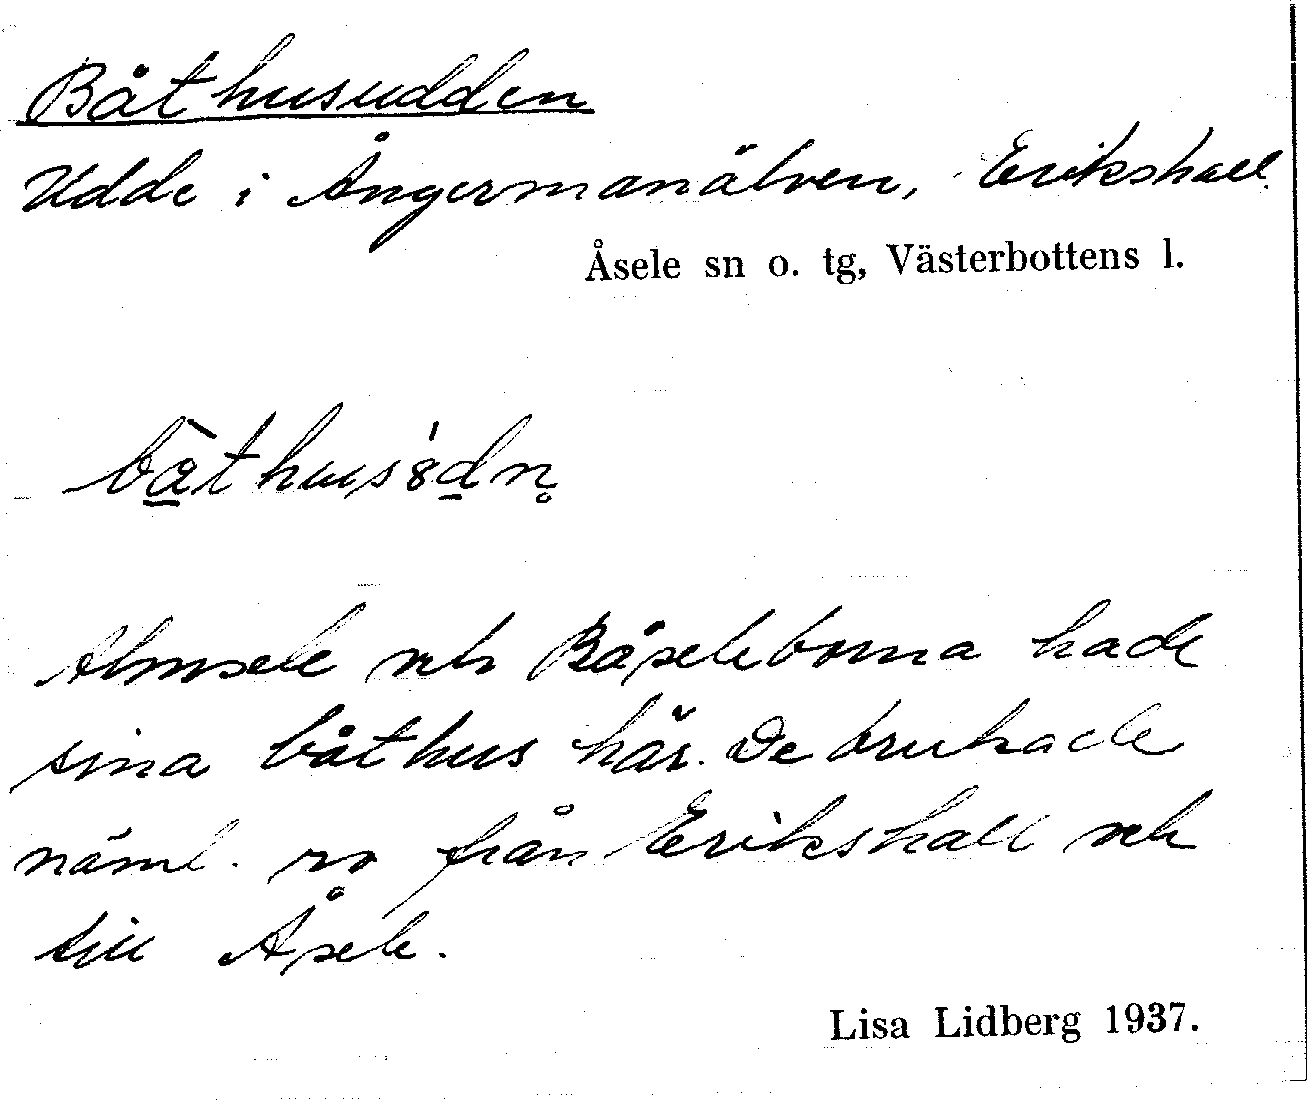 Båthusudden
Udde i Ångermanälven, Erikshall.
Åsele sn o. tg, Västerbottens l.
Almsele och Båseleborna hade
sina båthus här. De brukade
näml. ro från Erikshall och
till Åsele.
Lisa Lidberg 1937.